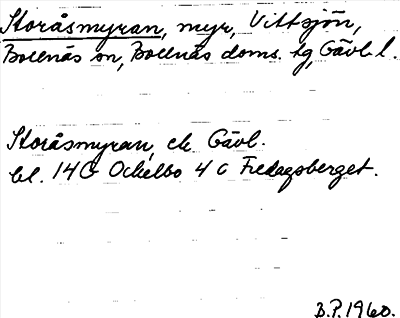 Storåsmyran, myr, Vittsjön,
Bollnäs sn, Bollnäs doms. tg, Gävl. l.
Storåsmyran, ek. Gävl.
bl. 14G Ockelbo 4 c Fredagsberget.
B.P. 1960.